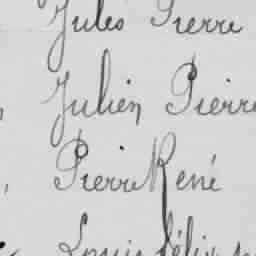 Jules Pierre
Julien Pierre
Pierre René
Louis Félix